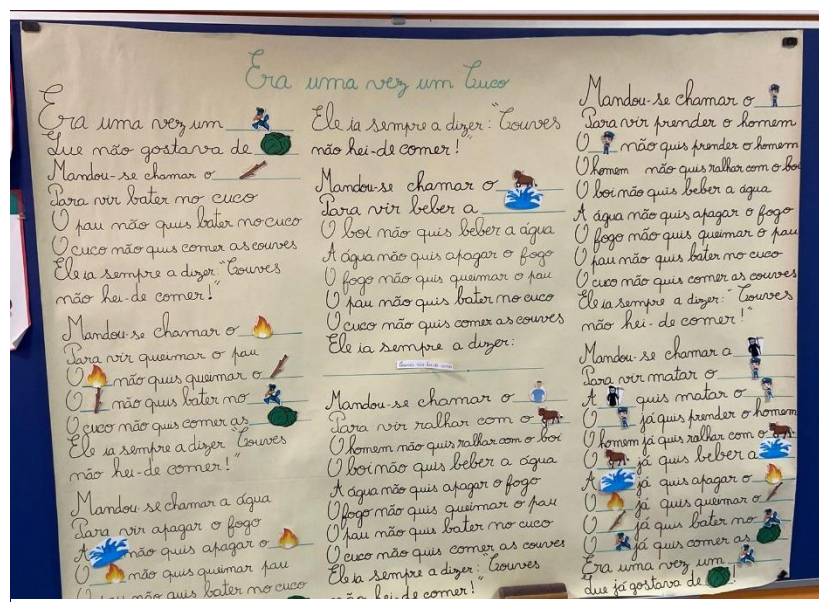 Era uma vez um Cuco
Era uma vez um
Que não gostava de
Mandou-se chamar o
Para vir bater no cuco
O pau não quis bater no cuco
O cuco não quis comer as couves
Ele ia sempre a dizer: "Couves
não hei-de comer!"
Mandou-se chamar o
Para vir queimar o pau
O não quis queimar o
O não quis bater no
O cuco não quis comer as
Ele ia sempre a dizer "Couves
não hei-de comer!"
Mandou-se chamar a água
Para vir apagar o fogo
A não quis apagar o
O não quis queimar pau
O pau não quis bater no cuco
Ele ia sempre a dizer: "Couves
não hei-de comer!"
Mandou-se chamar o
Para vir beber a
O boi não quis beber a água
A água não quis apagar o fogo
O fogo não quis queimar o pau
O pau não quis bater no cuco
O cuco não quis comer as couves
Ele ia sempre a dizer:
Mandou-se chamar o
Para vir ralhar com o
O homem não quis ralhar com o boi
O boi não quis beber a água
A água não quis apagar o fogo
O fogo não quis queimar o pau
O pau não quis bater no cuco
O cuco não quis comer as couves
Ele ia sempre a dizer: "Couves
não hei-de comer!"
Mandou-se chamar o
Para vir prender o homem
O não quis prender o homem
O homem não quis ralhar com o boi
O boi não quis beber a água
A água não quis apagar o fogo
O fogo não quis queimar o pau
O pau não quis bater no cuco
O cuco não quis comer as couves
Ele ia sempre a dizer: "Couves
não hei-de comer!"
Mandou-se chamar a
Para vir matar o
A quis matar o
O já quis prender o homem
O homem já quis ralhar com o
O já quis beber a
A já quis apagar o
O já quis queimar o
O já quis bater no
O já quis comer as
Era uma vez um
Que já gostava de !